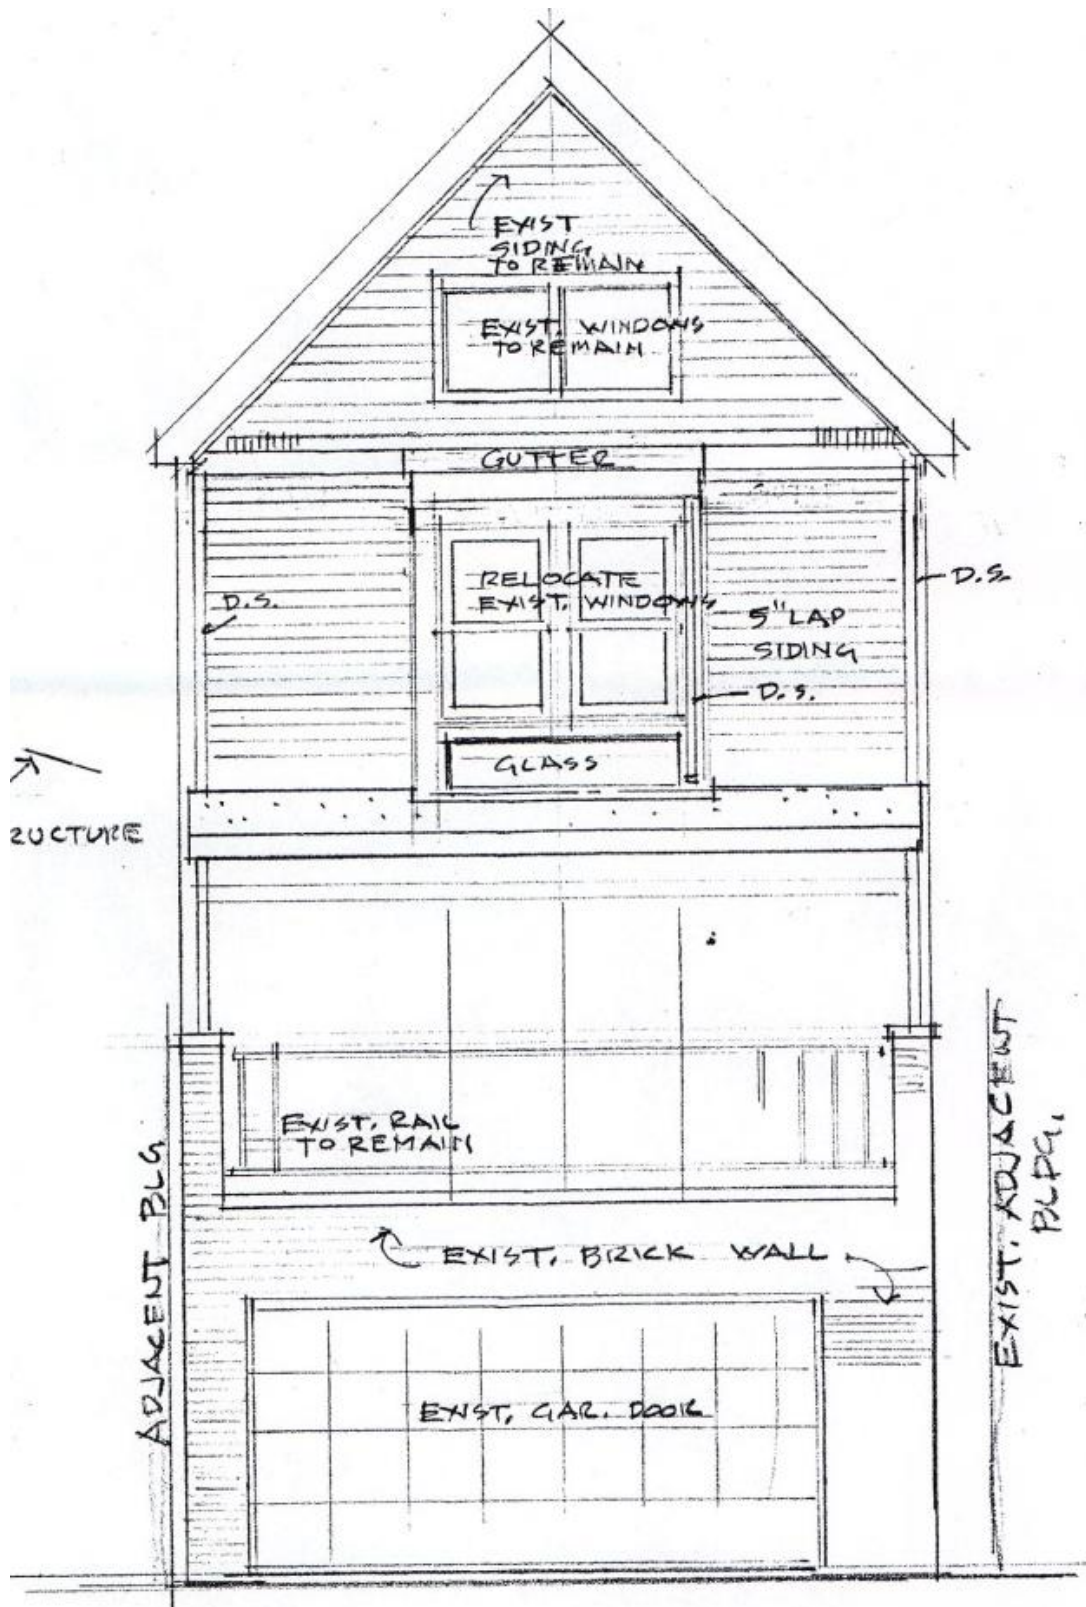 EXIST
SIDING
TO REMAIN
EXIST. WINDOWS
TO REMAIN
GUTTER
RELOCATE
EXIST. WINDOWS
D.S.
D.S.
5" LAP
SIDING
D.S.
GLASS
RUCTURE
EXIST. RAIL
TO REMAIN
ADJACENT BLG.
EXIST. ADJACENT
BLDG.
EXIST. BRICK WALL
EXIST. GAR. DOOR